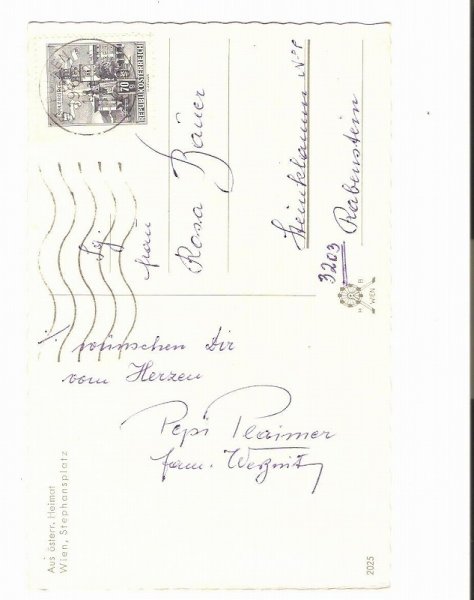 REPUBLIK ÖSTERREICH
70
Frau
Rosa Bauer
Steinklamm No 8
3203 Rabenstein
H B
WIEN
wünschen Dir
vom Herzen
Pepi Plaimer
Aus österr. Heimat
Wien, Stephansplatz
2025